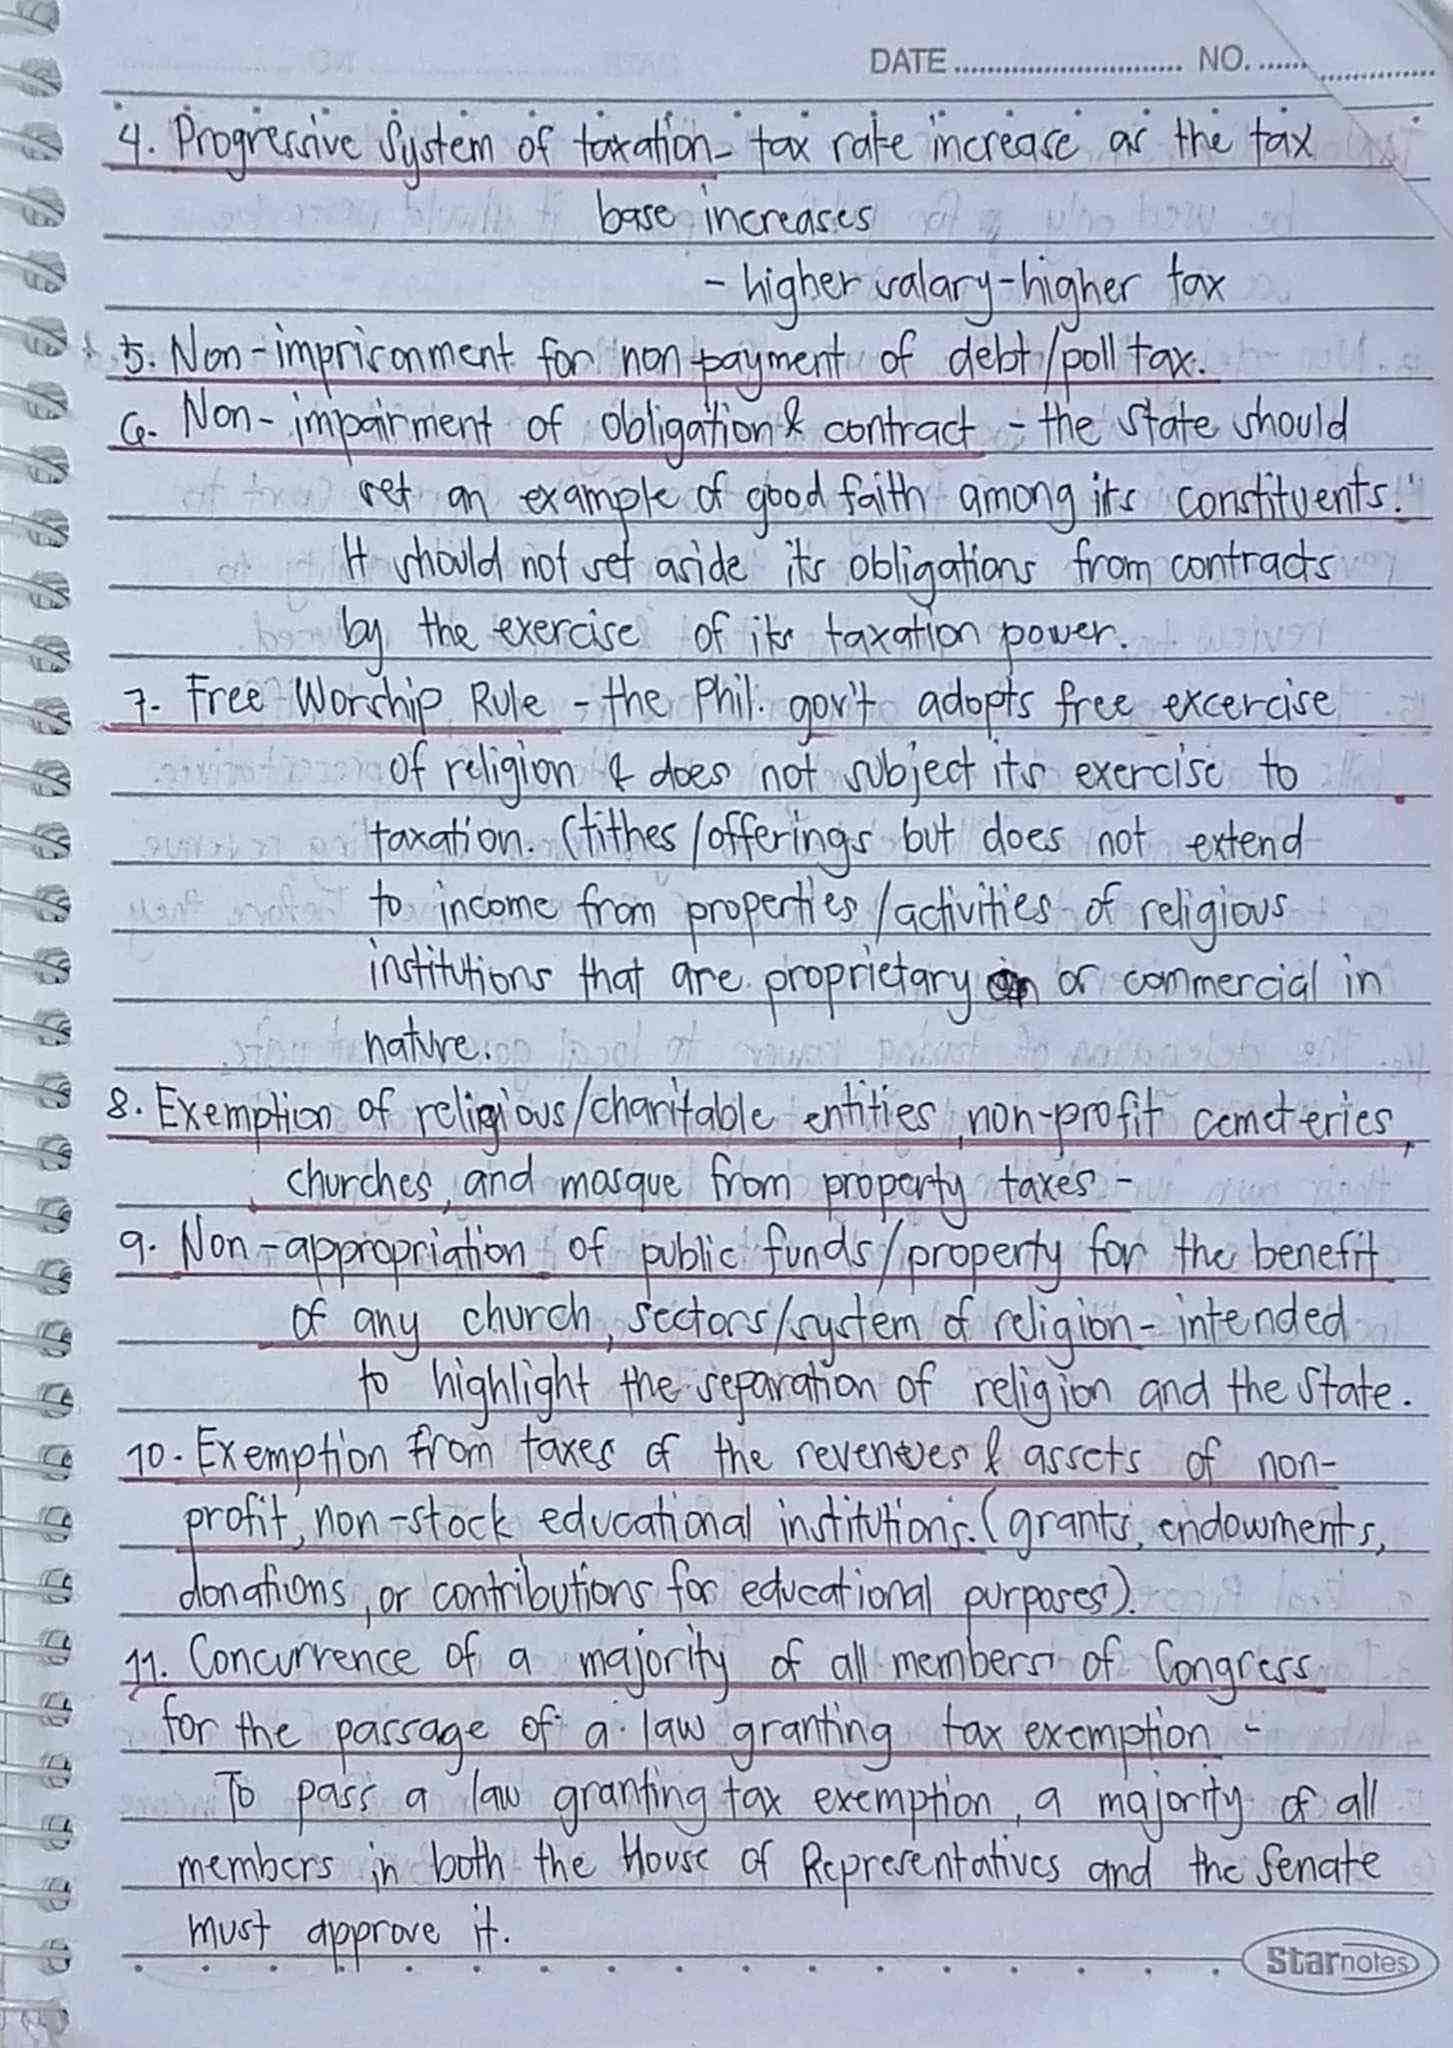 DATE .............................. NO. ......
4. Progressive System of taxation - tax rate increase as the tax
base increases
- higher salary - higher tax
5. Non-imprisonment for non payment of debt/poll tax.
6. Non-impairment of obligation & contract - the State should
set an example of good faith among its constituents.
It should not set aside its obligations from contracts
by the exercise of its taxation power.
7. Free Worship Rule - the Phil. gov't adopts free excercise
of religion & does not subject its exercise to
taxation. (tithes/offerings but does not extend
to income from properties/activities of religious
institutions that are proprietary or commercial in
nature.
8. Exemption of religious/charitable entities, non-profit cemeteries,
churches, and mosque from property taxes -
9. Non-appropriation of public funds/property for the benefit
of any church, sectors/system of religion - intended
to highlight the separation of religion and the State.
10. Exemption from taxes of the revenues & assets of non-
profit, non-stock educational institutions. (grants, endowments,
donations, or contributions for educational purposes).
11. Concurrence of a majority of all members of Congress
for the passage of a law granting tax exemption -
To pass a law granting tax exemption, a majority of all
members in both the House of Representatives and the Senate
must approve it.
Starnotes